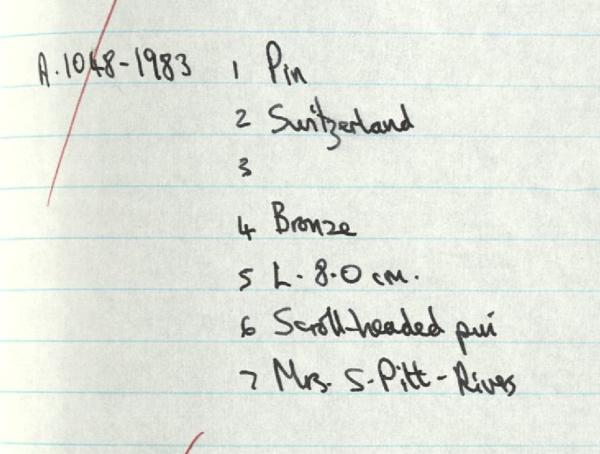 A.1048-1983 1 Pin
2 Switzerland
3
4 Bronze
5 L. 8.0 cm.
6 Scroll-headed pin
7 Mrs. S. Pitt-Rivers